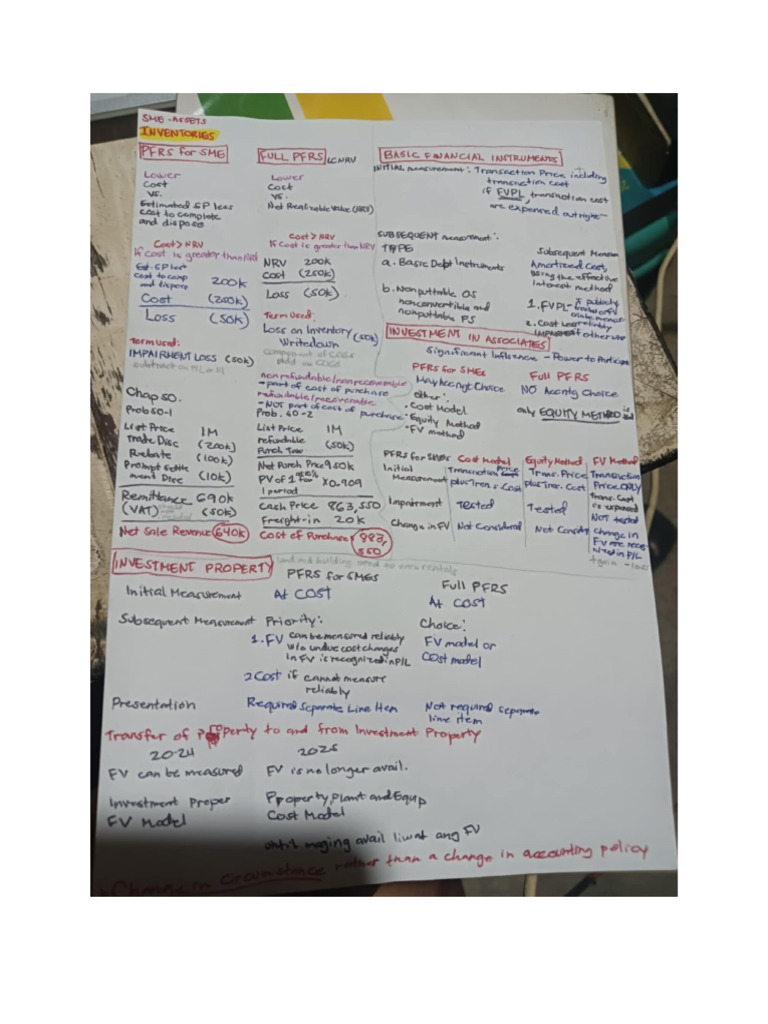 SME - ASSETS
INVENTORIES
PFRS for SME
Lower
Cost
vs.
Estimated SP less
cost to complete
and dispose
Cost > NRV
If cost is greater than NRV
Est. SP less
Cost to comp
and dispose 200k
Cost (250k)
Loss (50k)
Term used:
IMPAIRMENT LOSS (50k)
Chap 50.
Prob 50-1
List Price 1M
Trade Disc (200k)
Rebate (100k)
Prompt settle
ment Disc (10k)
Remittance 690k
(VAT) (50k)
Net Sale Revenue 640k
FULL PFRS LCNRV
Lower
Cost
vs.
Net Realizable Value (NRV)
Cost > NRV
If Cost is greater than NRV
NRV 200k
Cost (250k)
Loss (50k)
Term Used:
Loss on Inventory (50k)
Writedown
component of COGS
nonrefundable/nonrecoverable
- part of cost of purchase
refundable/recoverable
- NOT part of cost of purchase
Prob. 50-2
List Price 1M
refundable
Purch Tax (50k)
Net Purch Price 950k
PV of 1 for x0.909
1 period
Cash Price 863,550
Freight-in 20k
Cost of Purchase 883,
550
BASIC FINANCIAL INSTRUMENTS
INITIAL measurement: Transaction Price including
transaction cost
if FVPL, transaction cost
are expensed outright
SUBSEQUENT measurement:
TYPE
a. Basic Debt Instruments
b. Nonputtable OS
nonconvertible and
nonputtable PS
Subsequent Measure
Amortized Cost,
using the effective
interest method
1. FVPL - if publicly
2. Cost less
IMPAIRMENT if otherwise
INVESTMENT IN ASSOCIATES
Significant Influence - Power to Participate
PFRS for SMEs
May Accntg Choice
either:
• Cost Model
• Equity Method
• FV method
Full PFRS
NO Accntg Choice
only EQUITY METHOD
PFRS for SMEs Cost Model Equity Method FV Method
Initial Transaction Price Trans. Price Transaction
Measurement plus Tran s. Cost plus Tran. Cost Price ONLY
Trans. Cost
is expensed
Impairment Tested Tested NOT tested
Change in FV Not Considered Not Consider change in
FV are recog
nized in P/L
+gain -loss
INVESTMENT PROPERTY land and building used to earn rentals
PFRS for SMES Full PFRS
Initial Measurement At COST At COST
Subsequent Measurement Priority: Choice:
1. FV can be measured reliably FV model or
w/o undue cost changes Cost model
in FV is recognized in P/L
2 Cost if cannot measure
reliably
Presentation Required Separate Line Item Not required separate
line item
Transfer of Property to and from Investment Property
2024 2025
FV can be measured FV is no longer avail.
Investment Proper Property, Plant and Equip
FV Model Cost Model
until maging avail liwat ang FV
Change in circumstance rather than a change in accounting policy